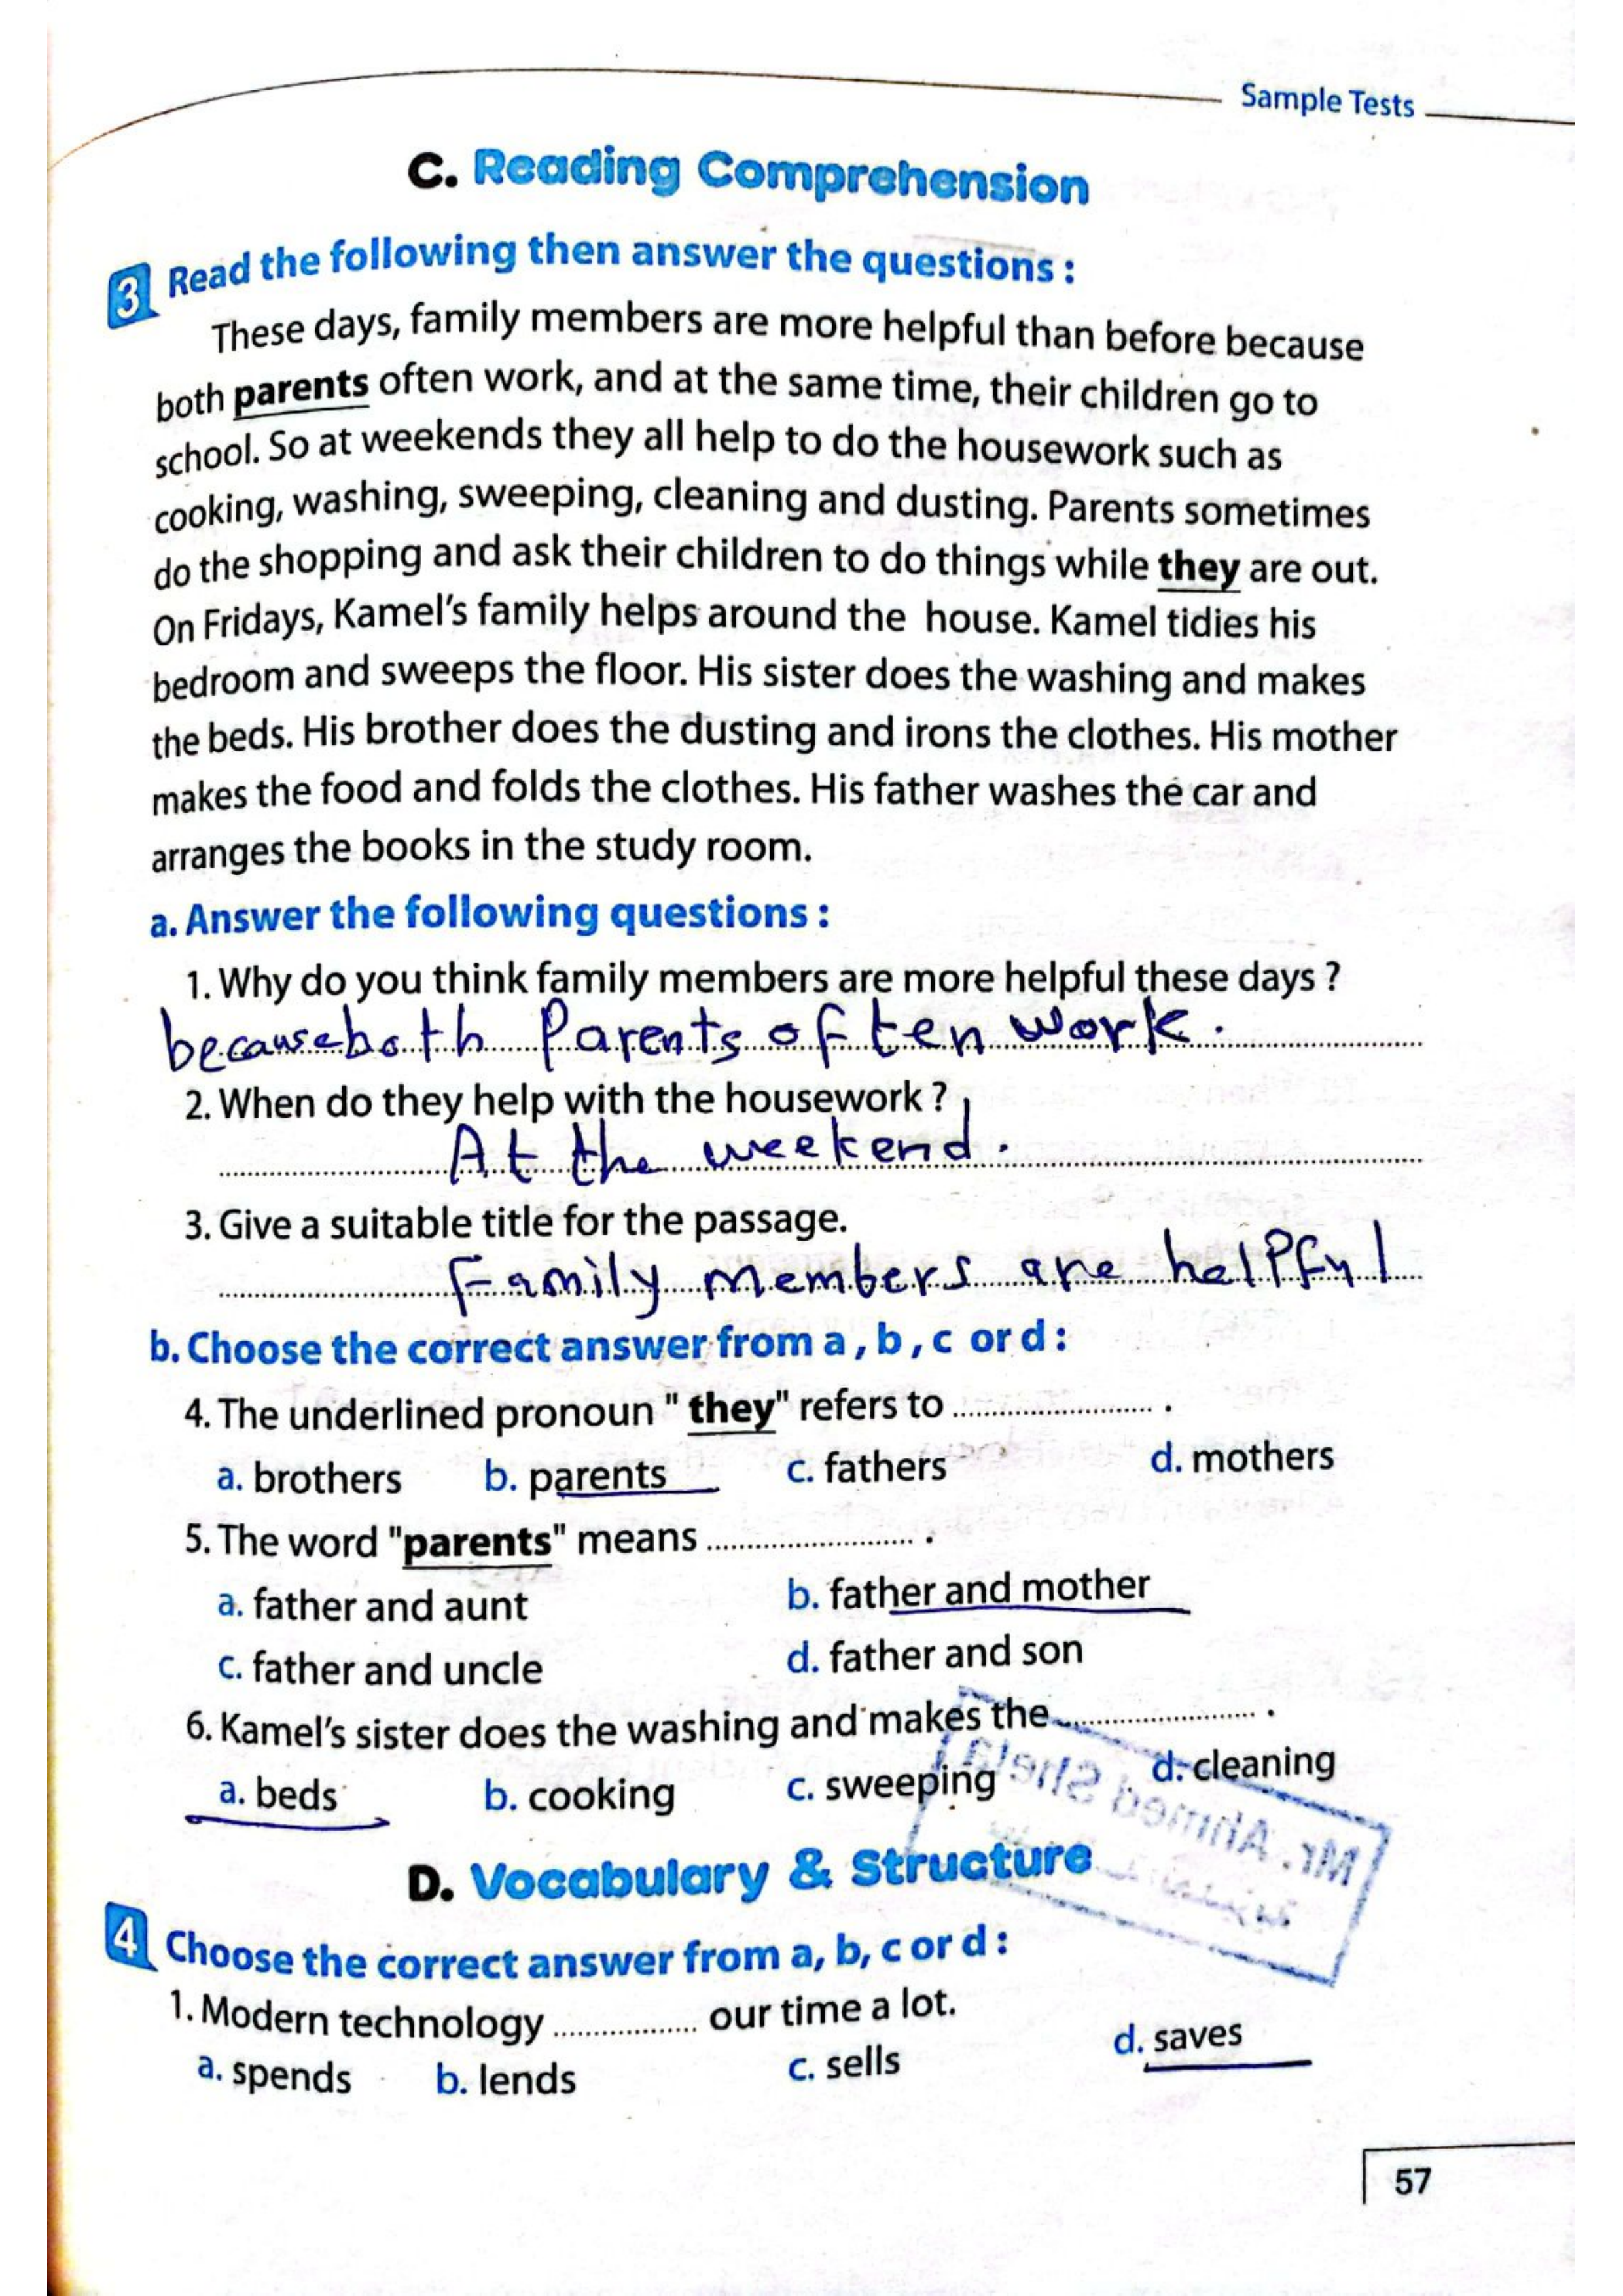 Sample Tests
C. Reading Comprehension
3 Read the following then answer the questions :
These days, family members are more helpful than before because
both parents often work, and at the same time, their children go to
school. So at weekends they all help to do the housework such as
cooking, washing, sweeping, cleaning and dusting. Parents sometimes
do the shopping and ask their children to do things while they are out.
On Fridays, Kamel's family helps around the house. Kamel tidies his
bedroom and sweeps the floor. His sister does the washing and makes
the beds. His brother does the dusting and irons the clothes. His mother
makes the food and folds the clothes. His father washes the car and
arranges the books in the study room.
a. Answer the following questions :
1. Why do you think family members are more helpful these days ?
because both Parents often work.
2. When do they help with the housework ?
At the weekend.
3. Give a suitable title for the passage.
Family members are helpful
b. Choose the correct answer from a , b , c or d :
4. The underlined pronoun " they" refers to .......................... .
a. brothers b. parents c. fathers d. mothers
5. The word "parents" means .......................... .
a. father and aunt b. father and mother
c. father and uncle d. father and son
6. Kamel's sister does the washing and makes the .......................... .
a. beds b. cooking c. sweeping d. cleaning
Mr. Ahmed Shela
D. Vocabulary & Structure
4 Choose the correct answer from a, b, c or d :
1. Modern technology .................. our time a lot.
a. spends b. lends c. sells d. saves
57